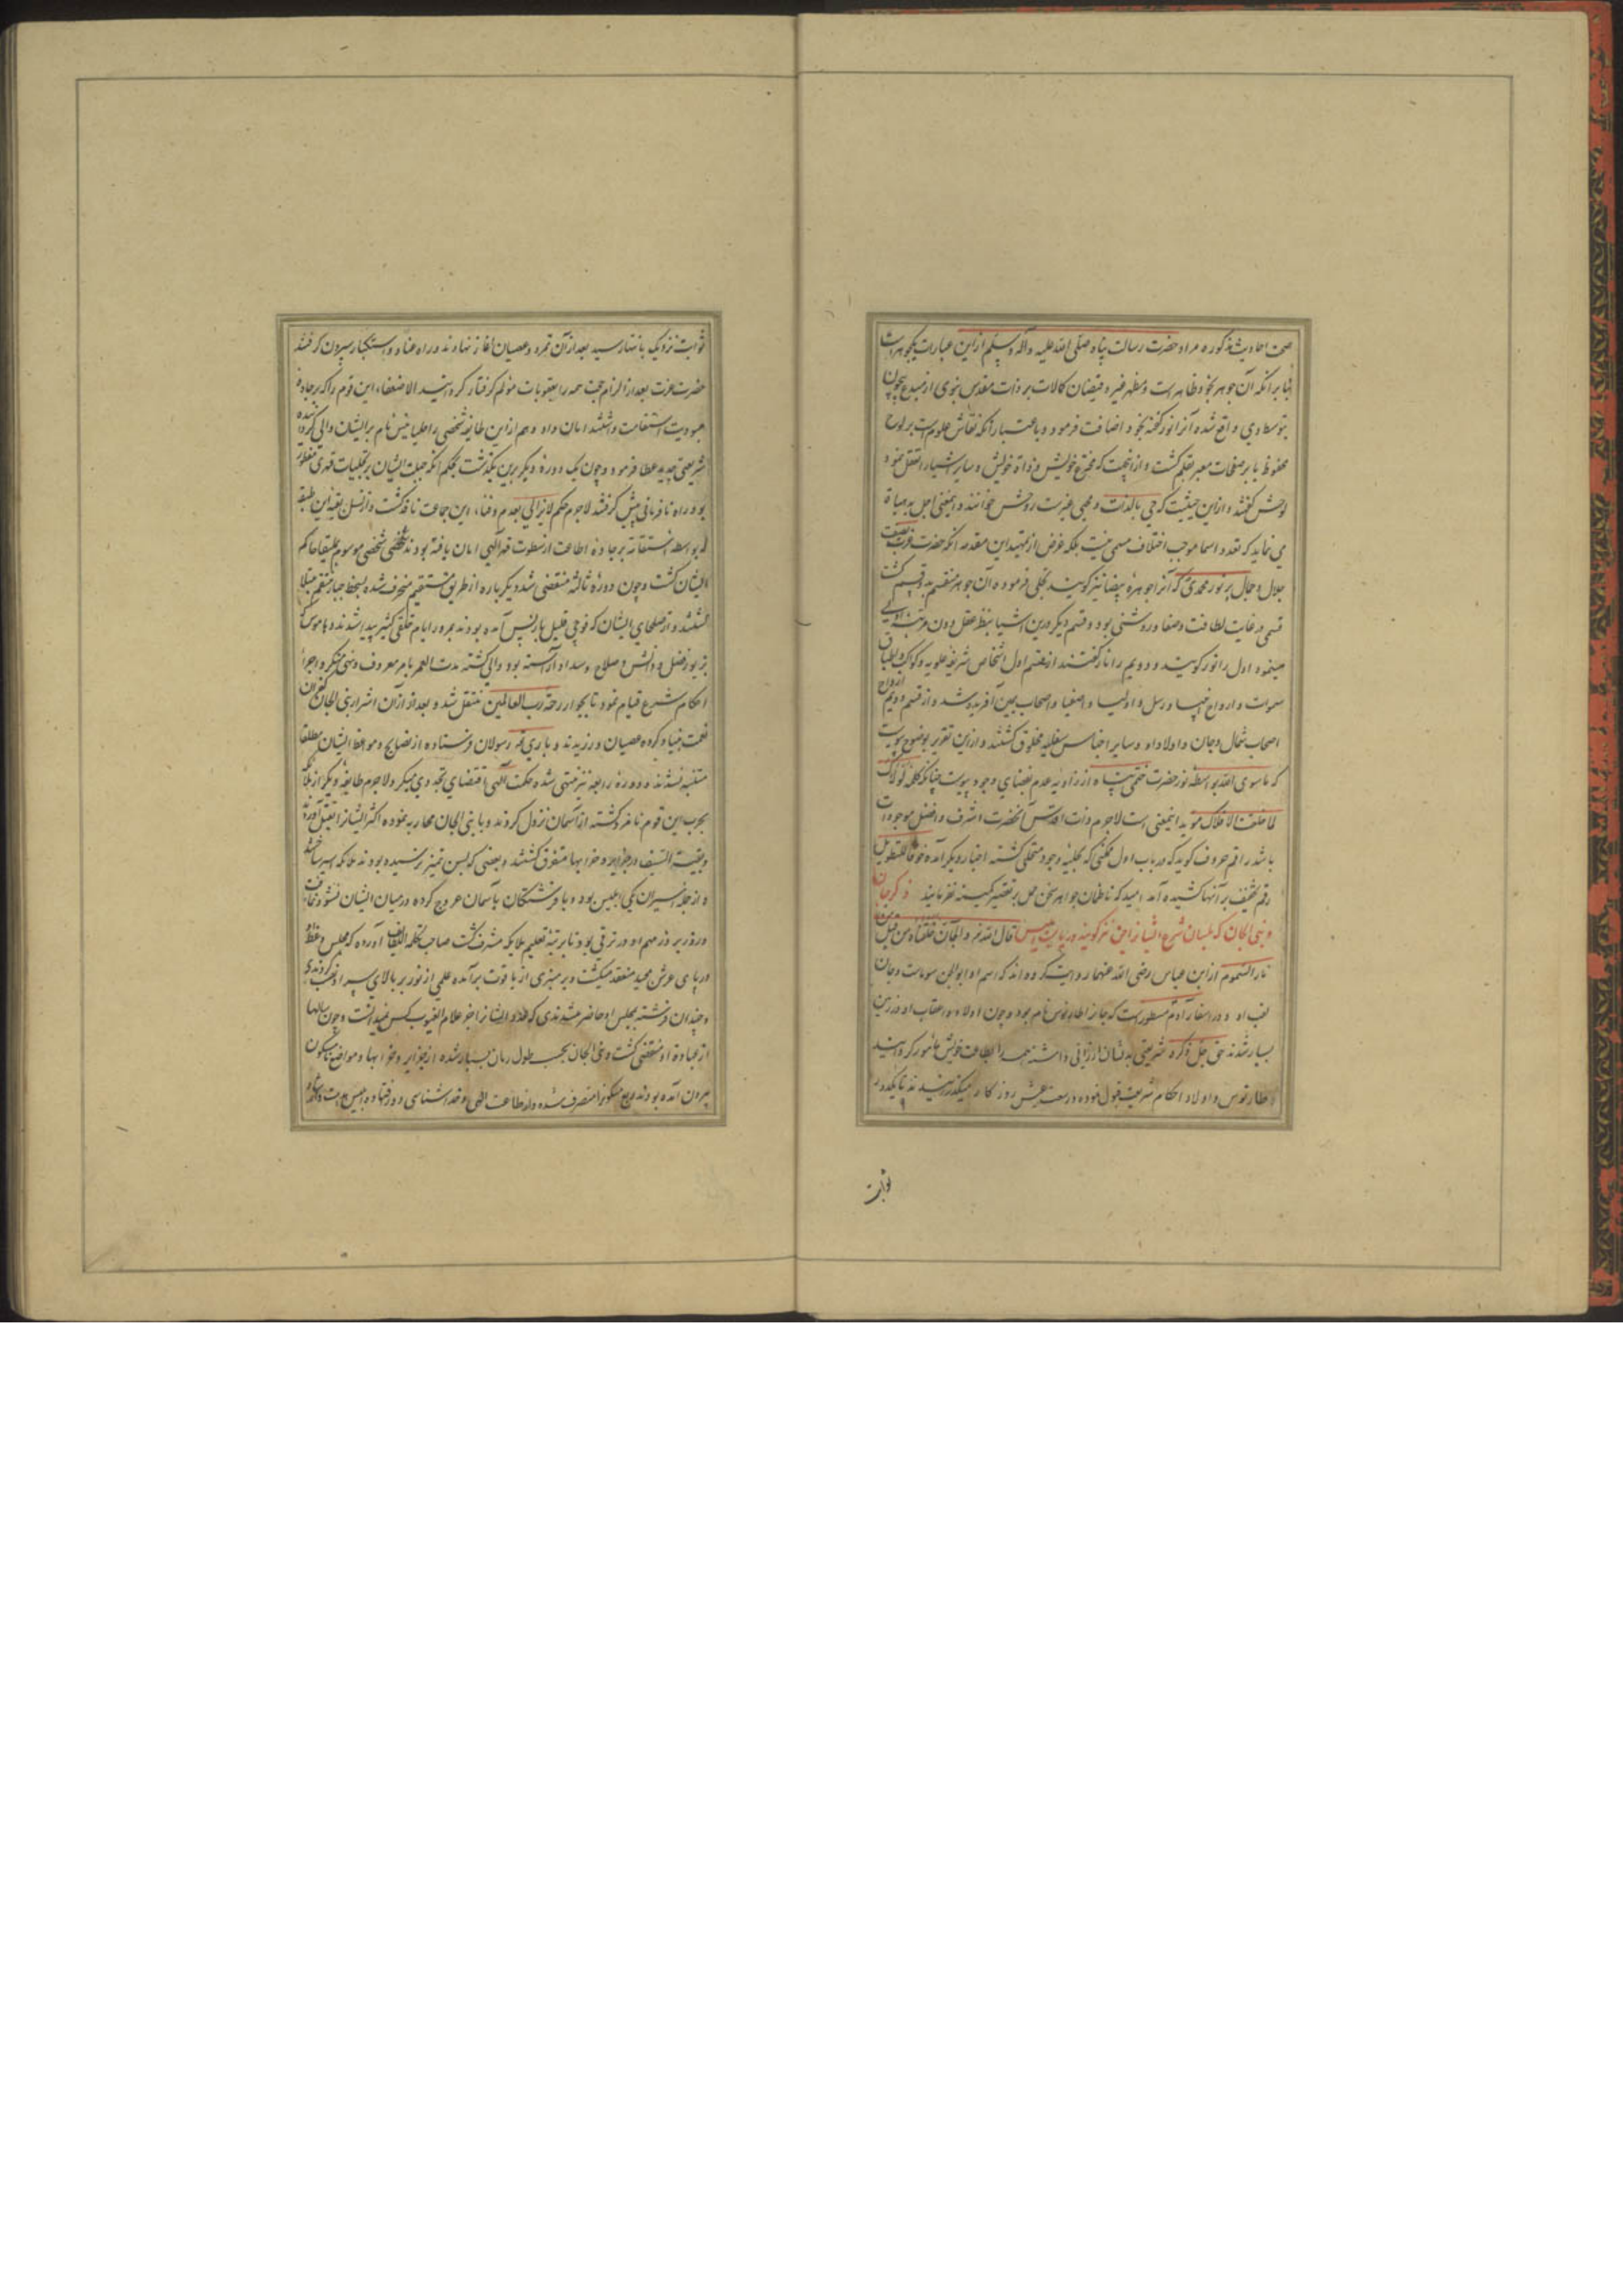 صحت احادیث مذکوره مراد حضرت رسالت پناه صلی الله علیه وآله وسلم ازاین عبارات یکجوهرست
بنا بر انکه آن جوهر بخود ظاهرست ومظهر غیر و فیضان کمالات بر ذات مقدس نبوی از مبدع بیچون
بتوسط وی واقع شده آنرا نور گفته بخود اضافت فرمود و باعتبار انکه نقاش علوم است بر لوح
محفوظ یا بر صفحات معبر بقلم گشت و از اینجهت که مخترع خویش و ذات خویش و سایر اشیا را تعقل نمود
عقلش گفتند و ازاین حیثیت که حی بالذات و محیی غیرست روحش خوانند و اینمعنی اجل بدیهیات
می نماید که تعدد اسما موجب اختلاف مسمی نیست بلکه غرض از تمهید این مقدمه انکه حضرت عزت بصفت
جلال و جمال بر نور محمدی که آنرا جوهره بیضا نیز گویند تجلی فرموده آن جوهر منقسم بدو قسم گشت
قسمی در غایت لطافت وصفا و روشنی بود و قسم دیگر درین اشیا بنظر عقل دون مرتبه اولی
مینمود اول را نور گویند و دویم را نار گفتند از قسم اول اشخاص شریفه علویه و کواکب واطباق
سموات و ارواح انبیا و رسل و اولیا و اصفیا و اصحاب یمین آفریده شد و از قسم دویم ارواح
اصحاب شمال وجان و اولاد او وسایر اجناس سفلیه مخلوق گشتند و ازاین تقریر بوضوح پیوست
که ماسوی الله بواسطه نور حضرت ختمی پناه از زاویه عدم بفضای وجود پیوست چنانکه کلمه لولاک
لما خلقت الافلاک موید اینمعنی است لاجرم ذات اقدس آنحضرت اشرف وافضل موجودات
باشد راقم حروف گوید که در باب اول ممکنی که بحلیه وجود متحلی گشته اخبار دیگر آمده خوفا للتطویل
رقم تخفیف بر آنها کشیده آمد امید که ناظمان جواهر سخن حمل بر تقصیر کمینه نفرمایند ذکر جان
و بنی الجان که بلسان شرع ایشانرا جن نیز گویند و بدایت ابلیس قال الله تعالی والجان خلقناه من قبل من
نار السموم از ابن عباس رضی الله عنهما روایت کرده اند که اسم او ابوالجن سوماست وجان
لقب او و در اسفار آدم مسطورست که جانرا طارنوس نام بود و چون اولاد واعقاب او در زمین
بسیار شدند حق جل ذکره شریعتی بدیشان ارزانی داشته همه را بطاعت خویش مامور گردانید
و طارنوس و اولاد احکام شریعت قبول نموده در سعت عیش روزگار میگذرانیدند تا یکدور
ثوابت
ثوابت نزدیک بانتها رسید بعد ازآن تمرد وعصیان آغاز نهادند و راه عناد و استکبار پیش گرفتند
حضرت عزت بعد از الزام حجت همه را بعقوبات مؤلم گرفتار گردانید الا ضعفاء این قوم را که بر جاده
عبودیت استقامت داشتند امان داد و هم از این طایفه شخصی را حلیانیش نام بر ایشان والی گردانیده
شریعتی جدید عطا فرمود و چون یک دوره دیگر برین بگذشت بحکم انکه جبلت ایشان بر تجلیات قهری مفطور
بود راه نافرمانی پیش گرفتند لاجرم حکم لایزالی بعدم وفناء این جماعت نافذ گشت و از نسل بقیه این طبقه
که بواسطه استقامت بر جاده اطاعت از سطوت قهر الهی امان یافته بودند شخصی موسوم بملیقا حاکم
ایشان گشت و چون دوره ثالثه منقضی شد دیگر باره از طریق مستقیم منحرف شده بسخط جبار منتقم مبتلا
گشتند و از صلحای ایشان که فوجی قلیل باز پس آمده بودند بمرور ایام خلقی کثیر پیدا شدند و هاموس که
بزیور فضل و دانش و صلاح و سداد آراسته بود والی گشته مدت العمر بامر معروف ونهی منکر و اجراء
احکام شرع قیام نمود تا بجوار رحمت رب العالمین منتقل شد و بعد از آن اشرار بنی الجان کفران
نعمت بنیاد کرده عصیان ورزیدند و باری تعالی رسولان فرستاده از نصایح و مواعظ ایشان مطلقا
متنبه نشدند و دوره رابعه نیز منتهی شد و حکمت الهی اقتضای تجددی میکرد لاجرم طایفه دیگر از ملائکه
بحرب این قوم نامزد گشته از آسمان نزول کردند و با بنی الجان محاربه نموده اکثر ایشانرا بقتل آوردند
و بقیة السیف در جزایر و خرابها متفرق گشتند و بعضی که بسن تمیز نرسیده بودند ملائکه اسیر ساختند
و از جمله اسیران یکی ابلیس بود و با فرشتگان بآسمان عروج کرده در میان ایشان نشو و نما یافت
و روز بروز مهم او در ترقی بود تا بمرتبه تعلیم ملایکه مشرف گشت صاحب تحفه آورده که مجلس وعظ او
در پای عرش مجید منعقد میگشت و بر منبری از یاقوت برآمده علمی از نور بر بالای سر او نصب کردندی
و چندان فرشته بمجلس او حاضر میشدندی که عدد ایشانرا جز علام الغیوب کس نمیدانست و چون سالها
از عبادت او منقضی گشت و بنی الجان بحسب طول زمان بسیار شده از جزایر و خرابها و مواضع نامسکون
بیرون آمده بودند و ربع مسکون را متصرف شده و از طاعت الهی و خدا شناسی دور افتاده ابلیس